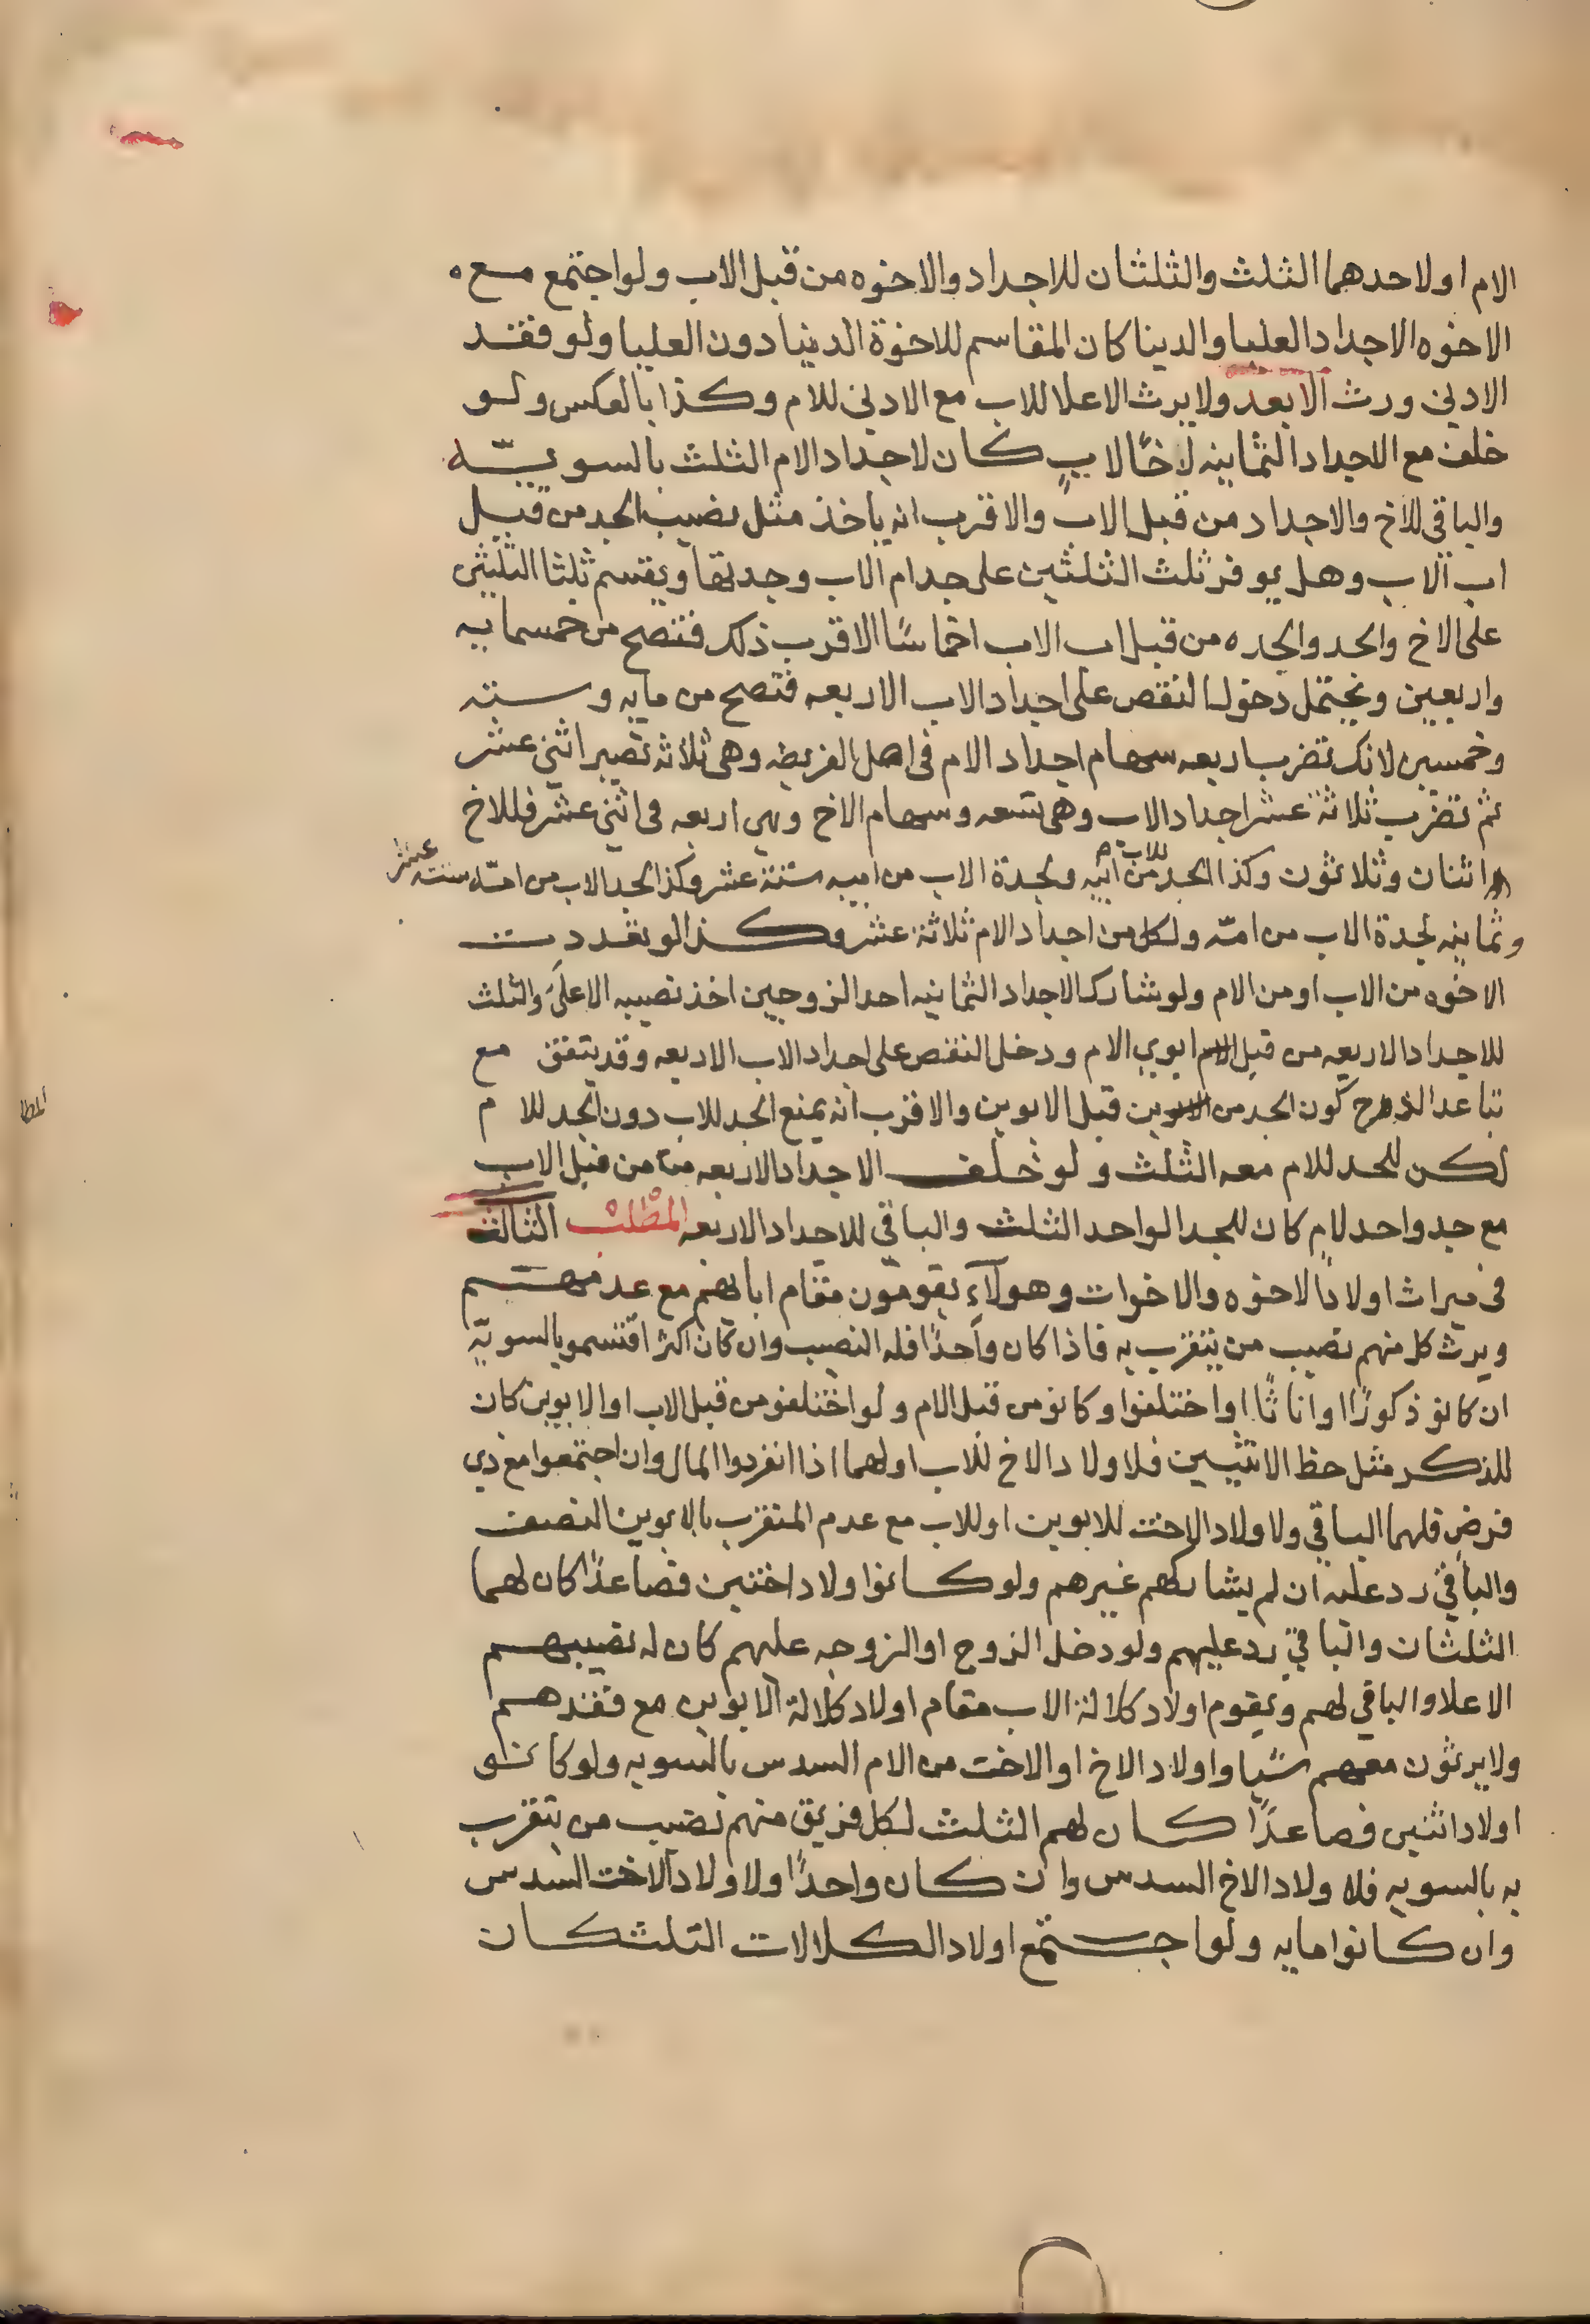 الام او لاحدهما الثلث والثلثان للاجداد والاخوه من قبل الاب ولو اجتمع مع
الاخوه الاجداد العليا والدينا كان المقاسم للاخوة الدنيا دون العليا ولو فقد
الادنى ورث الابعد ولا يرث الاعلا للاب مع الادنى للام وكذا بالعكس ولو
خلف مع الاجداد الثمانيه لاخًا لابٍ كان لاجداد الام الثلث بالسويّه
والباقى للاخ والاجداد من قبل الاب والاقرب انه ياخذ مثل نصيب الجد من قبل
اب الاب وهل يوفر ثلث الثلثين على جد ام الاب وجدتها ويقسم ثلثا الثلثى
على الاخ والجد والجده من قبل اب الاب اخماسًا الاقرب ذلك فتصح من خمسمايه
واربعين ويحتمل دخول النقص على اجداد الاب الاربعه فتصح من مايه وسته
وخمسين لانك تضرب اربعه سهام اجداد الام فى اصل الفريضه وهى ثلاثه تصير اثنى عشر
ثم تضرب ثلاثة عشر اجداد الاب وهى تسعه وسهام الاخ وهى اربعه فى اثنى عشر فللاخ
اثنان وثلاثون وكذا الجد للاب من ابيه ولجدة الاب من ابيه ستة عشر وكذا لجد الاب من امّه سته عشر
وثمانيه لجدة الاب من امّه ولكل من اجداد الام ثلاثة عشر وكذا لو تعددت
الاخوه من الاب او من الام ولو شارك الاجداد الثمانيه احد الزوجين اخذ نصيبه الاعلى والثلث
للاجداد الاربعه من قبل ابوي الام ودخل النقص على اجداد الاب الاربعه وقد يتفق مع
تباعد الدرج كون الجد من قبل الابوين والاقرب انه يمنع الجد للاب دون الجد للام
لكن للجد للام معه الثلث ولو خلف الاجداد الاربعه من قبل الاب
مع جد واحد لام كان للجد الواحد الثلث والباقي للاجداد الاربعه المطلب الثالث
فى ميراث اولاد الاخوه والاخوات وهولآءِ يقومون مقام ابائهم مع عدمهم
ويرث كل منهم نصيب من يتقرب به فاذا كان واحدًا فله النصيب وان كان اكثر اقتسمو بالسويّه
ان كانو ذكورًا او اناثًا او اختلفوا وكانو من قبل الام ولو اختلفو من قبل الاب او الابوين كان
للذكر مثل حظ الانثيين فلاولاد الاخ للاب او لهما اذا انفردوا المال وان اجتمعوا مع ذي
فرض فلهما الباقي ولاولاد الاخت للابوين او للاب مع عدم المتقرب بالابوين النصف
والباقي رد عليه ان لم يشاركهم غيرهم ولو كانوا اولاد اختين فصاعدًا كان لهما
الثلثان والباقي رد عليهم ولو دخل الزوج او الزوجه عليهم كان له نصيبهم
الاعلا والباقي لهم ويقوم اولاد كلالة الاب مقام اولاد كلالة الابوين مع فقدهم
ولا يرثون معهم شيا واولاد الاخ او الاخت من الام السدس بالسويه ولو كانو
اولاد اثنين فصاعدًا كان لهم الثلث لكل فريق منهم نصيب من يتقرب
به بالسويه فلاولاد الاخ السدس وان كان واحدًا ولاولاد الاخت السدس
وان كانوا مايه ولو اجتمع اولاد الكلالات الثلث كان